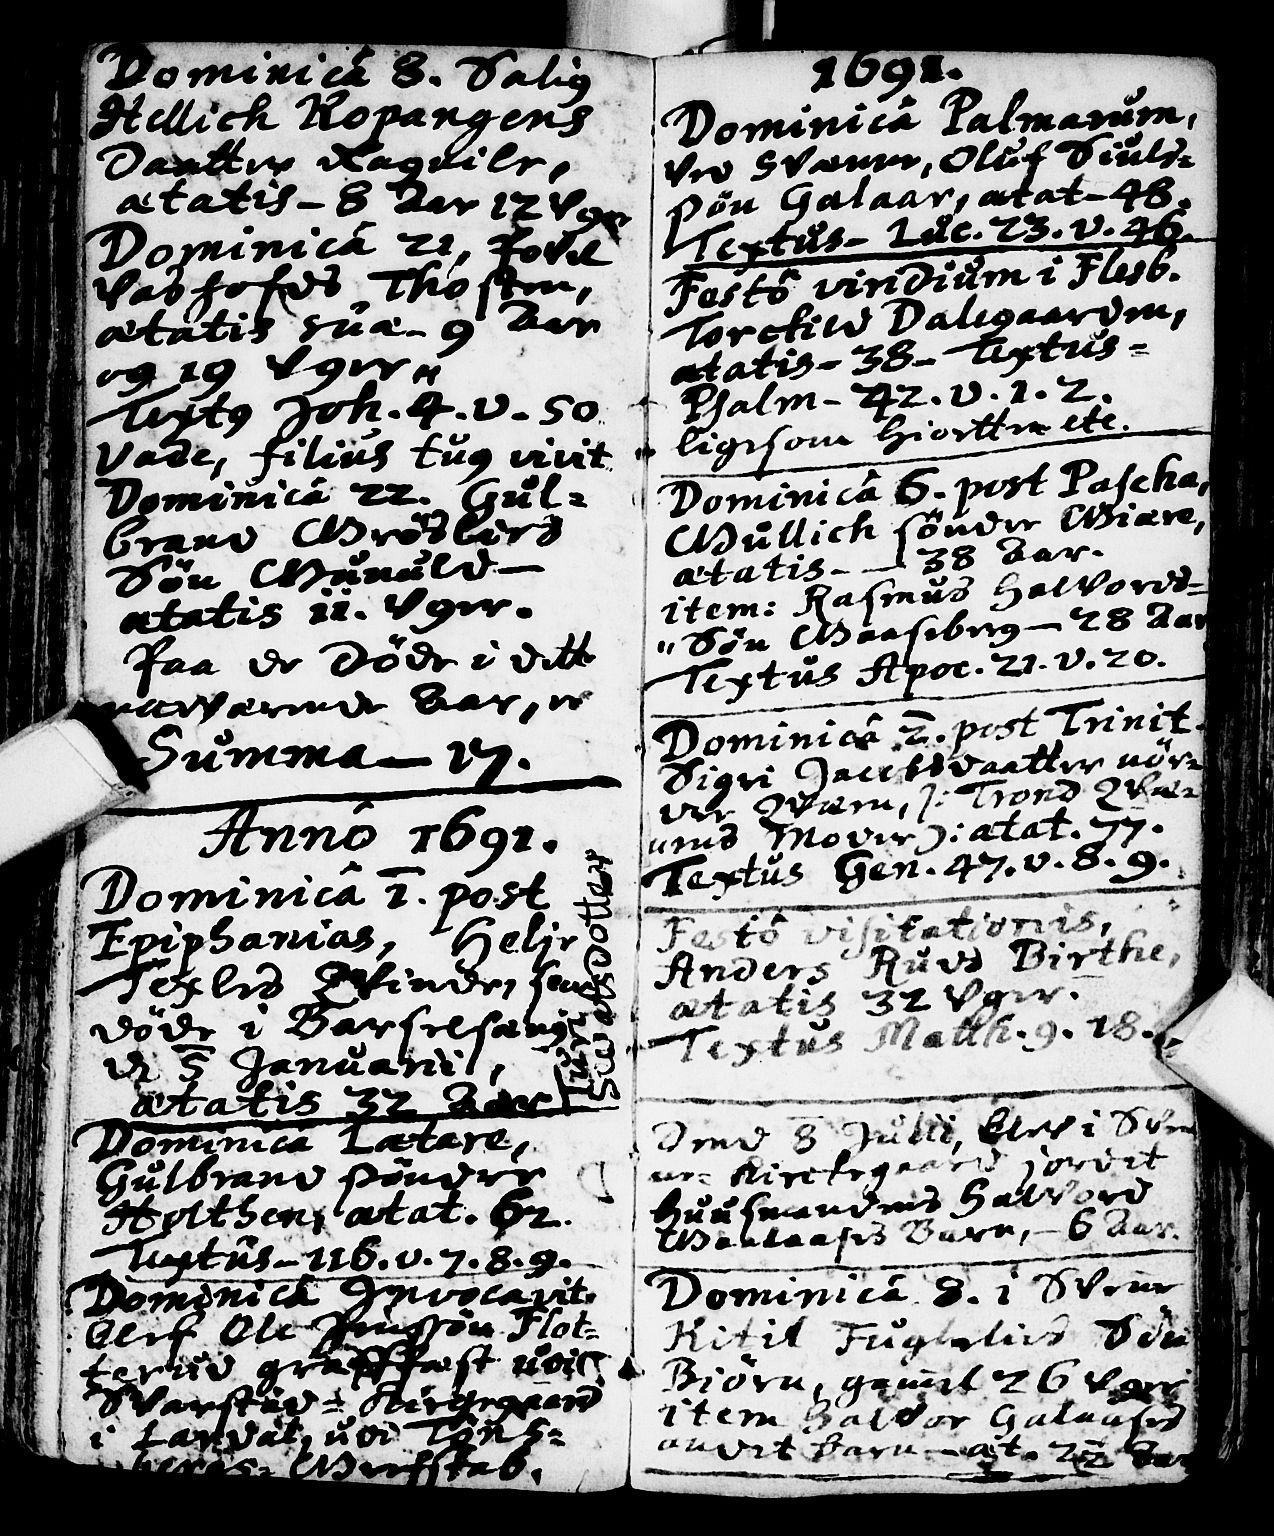 Dominicâ 8. Salig
Hellich Kopangens
Daatter Raguilr,
ætatis - 8 Aar 12 Vger
Dominicâ 21,
Thosten,
ætatis suæ - 9 Aar
og 19 Vgrr
Textg Joh. 4. v. 50
Vade, filius tug vivit
Dominicâ 22. Gul=
brand
Sön Gunuld -
ætatis ii. Vgrr.
Paa de Döde i dette
nærværende Aar, er
Summa - 17.
Annô 1691.
Dominicâ 1. post
Epiphanias, Helje
Texlrd Qvinde, som
döde i Barselsæng
d 5 Januarii,
ætatis 32 Aar
Dominicâ Lætare,
Gulbrand söndre
Holthen, ætat. 62.
Textus - 116. v. 7. 8. 9.
Dominicâ Invocavit
blef Ole Flot=
terud graffæst udi
Svarstad = Kirgegaard
i Lardal, udi Töns=
bergs=
1691.
Dominicâ Palmarum,
Oluf Siuls=
sön Galaar, ætat - 48.
Textus - Luc. 23. v. 46.
Festô viridium i Flesb.
Torckild Dalegaarden,
ætatis - 38 - Textus =
Psalm - 42. v. 1. 2.
ligesom Hiortten etc.
Dominicâ 6. post Pascha,
Gullich sönder
ætatis - - 38 Aar.
item: Rasmus Halvords=
Sön Gaasebrrg - 28 Aar
Textus Apoc. 21. v. 20.
Dominicâ 2. post Trinit.
Sigri Jacobsdaatter nör=
der Qværn, /: Trond Qvæ=
rnes Moder :/ ætat. 77.
Textus Gen. 47. v. 8. 9.
Festô visitationis,
Anders Ruds Birthe,
ætatis 32 Vger.
Textus Matth. 9. 18.
Dend 8 Julii, blev i Sve
ne= Kirckegaard jordet
Huusmandens Halvord
Barn, - 6 Aar.
Dominicâ 8. i Svene
Kitil Fuglelies Sön
Biörn, gamel 26 Vger
item Halvor Galaases
andet barn - æt. 2 Aar